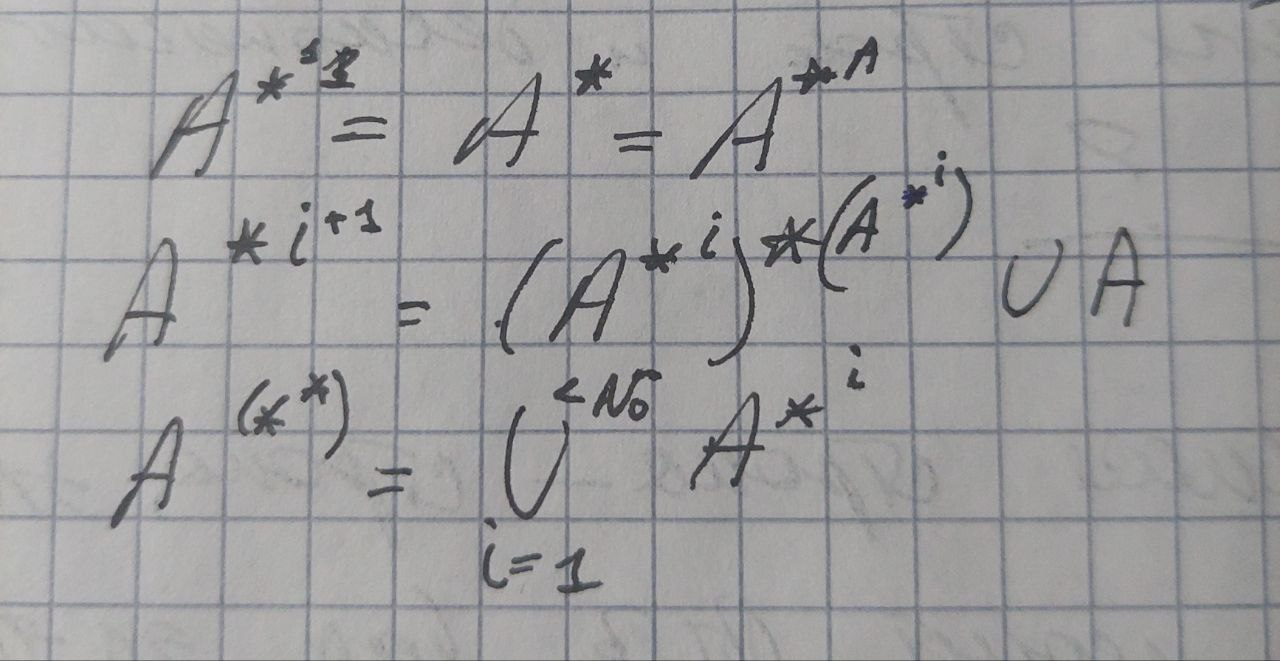 A^{*^1} = A^* = A^{*A}
A^{*i+1} = (A^{*i})^{*(A^{*i})} ∪ A
A^{(**)} = ∪_{i=1}^{<ℵ₀} A^{*i}